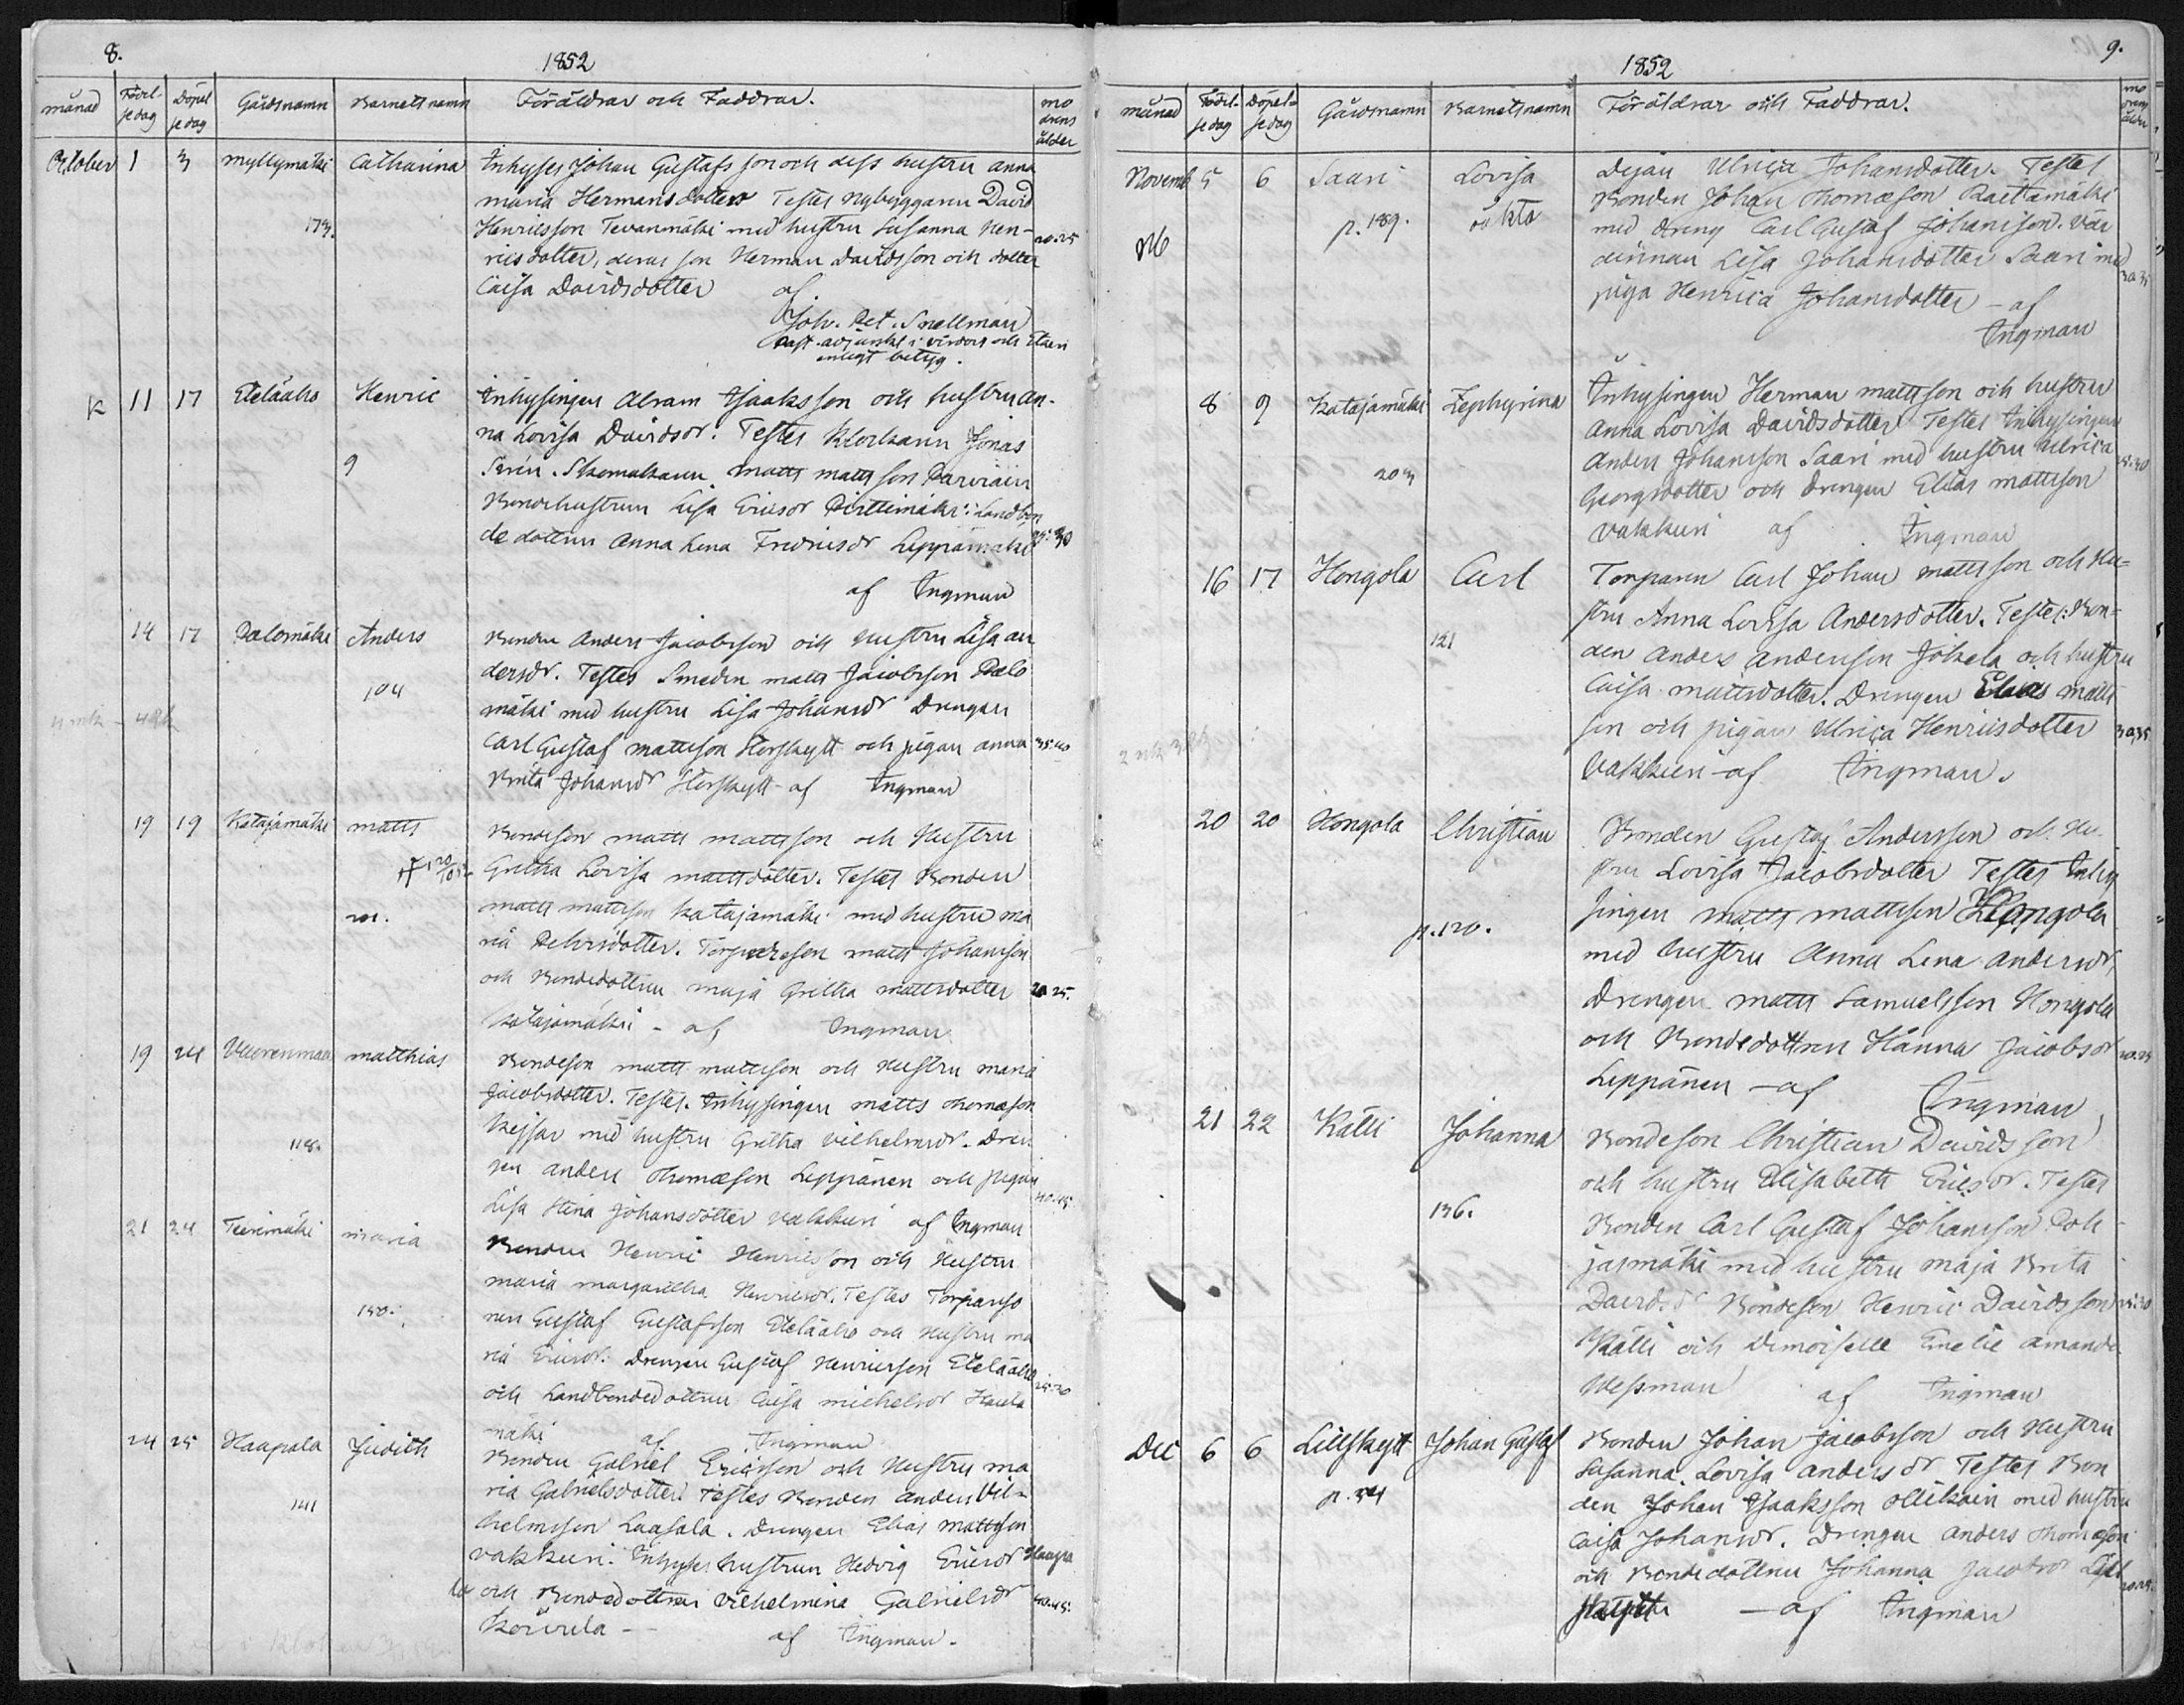 8.
1852
månad Födel-sedag Döpelsedag Gårdsnamn Barnets namn Föräldrar och Faddrar. modrens ålder
October 1 3 Myllymäki Catharina Inhyses Johan Gustafsson och dess hustru Anna
Maria Hermansdotter Testes Nybyggaren David
173. Henricsson Tevanmäki med hustru Susanna Hen- 20.25
ricsdotter, deras son Herman Davidsson och dotter
Caisa Davidsdotter af
Joh. Pet. Snellman
Past. adjunkt i Virdois och Etseri
enligt betyg.
K 11 17 Eteläaho Henric Inhysingen Abram Isaaksson och hustru An-
na Lovisa Davidsdr. Testes Klockaren Jonas
9 Skomakaren Matts Mattsson Parviain
Bondehustrun Lisa Ericsdr Pirttimäki: Landbon
de dottren Anna Lena Fredricsdr Leppämäki 25:30
af Ingman
14 17 Palomäki Anders Bonden Anders Jacobsson och hustru Lisa An
dersdr. Testes Smeden Matts Jacobsson Palo
104 mäki med hustru Lisa Johansdr Drengen
Carl Gustaf Mattsson Storskytt och pigan Anna 35:40
Brita Johansdr Storskytt - af Ingman
19 19 Katajamäki Matts Bondeson Matts Mattsson och Hustru
Gretha Lovisa Mattsdotter. Testes Bonden
Matts Mattsson Katajamäki med hustru Ma
ria Pehrsdotter. Torpareson Matts Johansson
och Bondedottren Maja Gretha Mattsdotter 20 25.
Katajamäki - af Ingman
19 24 Vuorenmaa Matthias Bondeson Matts Mattsson och Hustru Maria
Jacobsdotter. Testes. Inhysingen Matts Thomasson
Keissar med hustru Gretha Vilhelmsdr. Dren
118. gen Anders Thomasson Leppänen och pigan
Lisa Stina Johansdotter Vakkuri af Ingman 40.45
21 24 Teerimäki Maria Bonden Henric Henricsson och Hustru
Maria Margaretha Henricsdr. Testes Torpareso
150. nen Gustaf Gustafsson Eteläaho och Hustru Ma
ria Ericsdr. Drengen Gustaf Henricsson Eteläaho
och Landbondedottren Caisa Michelsdr Hauta 25.30
mäki af Ingman
24 25 Haapala Judith Bonden Gabriel Ericsson och Hustru Ma
ria Gabrielsdotter Testes Bonden Anders Vil-
141 helmsson Laasala. Drengen Elias Mattsson
Vakkuri. Inhyses hustrun Hedvig Ericsdr Haapa
la och Bondedottren Vilhelmina Gabrielsdr 40.45.
Koivula - af Ingman.
9.
1852
månad Födel-sedag Döpel-sedag Gårdsnamn Barnets namn Föräldrar och Faddrar. modrens ålder
Novemb 5 6 Saari Lovisa Dejan Ulrica Johansdotter. Testes
p. 189. oäkta Bonden Johan Thomasson Raittamäki
Nb med dreng Carl Gustaf Johansson. Vär
dinnan Lisa Johansdotter Saari med 30 35
piga Henrica Johansdotter - af
Ingman
8 9 Katajamäki Zephyrina Inhysingen Herman Mattsson och hustru
Anna Lovisa Davidsdotter Testes Inhysingen
203 Anders Johansson Saari med hustru Ulrica 25.30
Georgsdotter och Drengen Elias Mattsson
Vakkuri af Ingman
16 17 Hongola Carl Torparen Carl Johan Mattsson och Hu-
stru Anna Lovisa Andersdotter. Testes: Bon-
121 den Anders Andersson Jokela och hustru
Caisa Mattsdotter. Drengen Elias Matts
son och pigan Ulrica Henricsdotter 30,35
Vakkuri - af Ingman.
20 20 Hongola Christian Bonden Gustaf Andersson och Hu-
stru Lovisa Jacobsdotter Testes Inhy
singen Matts Mattsson Hongola
p. 120. med hustru Anna Lena Andersdr,
Drengen Matts Samuelsson Hongola
och Bondedottren Hanna Jacobsdr 20.25
Leppänen - af Ingman
21 22 Källi Johanna Bondeson Christian Davidsson
och hustru Elisabeth Ericsdr. Testes
136. Bonden Carl Gustaf Johansson Poh
jasmäki med hustru Maja Brita
Davidsdr Bondeson Henric Davidsson 25.30
Källi och Demoiselle Emelie Amanda
Wessman af Ingman
Dec 6 6 Lillskytt Johan Gustaf Bonden Johan Jacobsson och Hustru
Susanna Lovisa Andersdr Testes Bon
p. 54 den Johan Isaaksson Ollikain med hustru
Caisa Johansdr. Drengen Anders Thomasson
och Bondedottren Johanna Jacobsdr Lill 20.25.
skytt - af Ingman